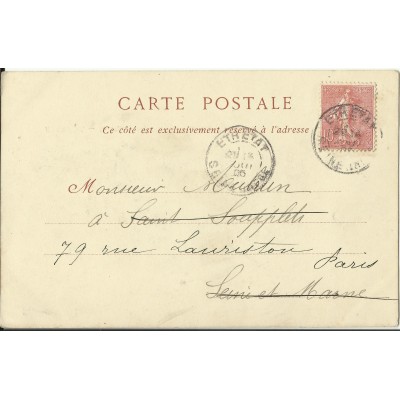 CARTE POSTALE
Ce côté est exclusivement réservé à l'adresse
ETRETAT
ETRETAT
05
Monsieur
à Saint Soupplets
79 rue Lauriston Paris
Seine et Marne